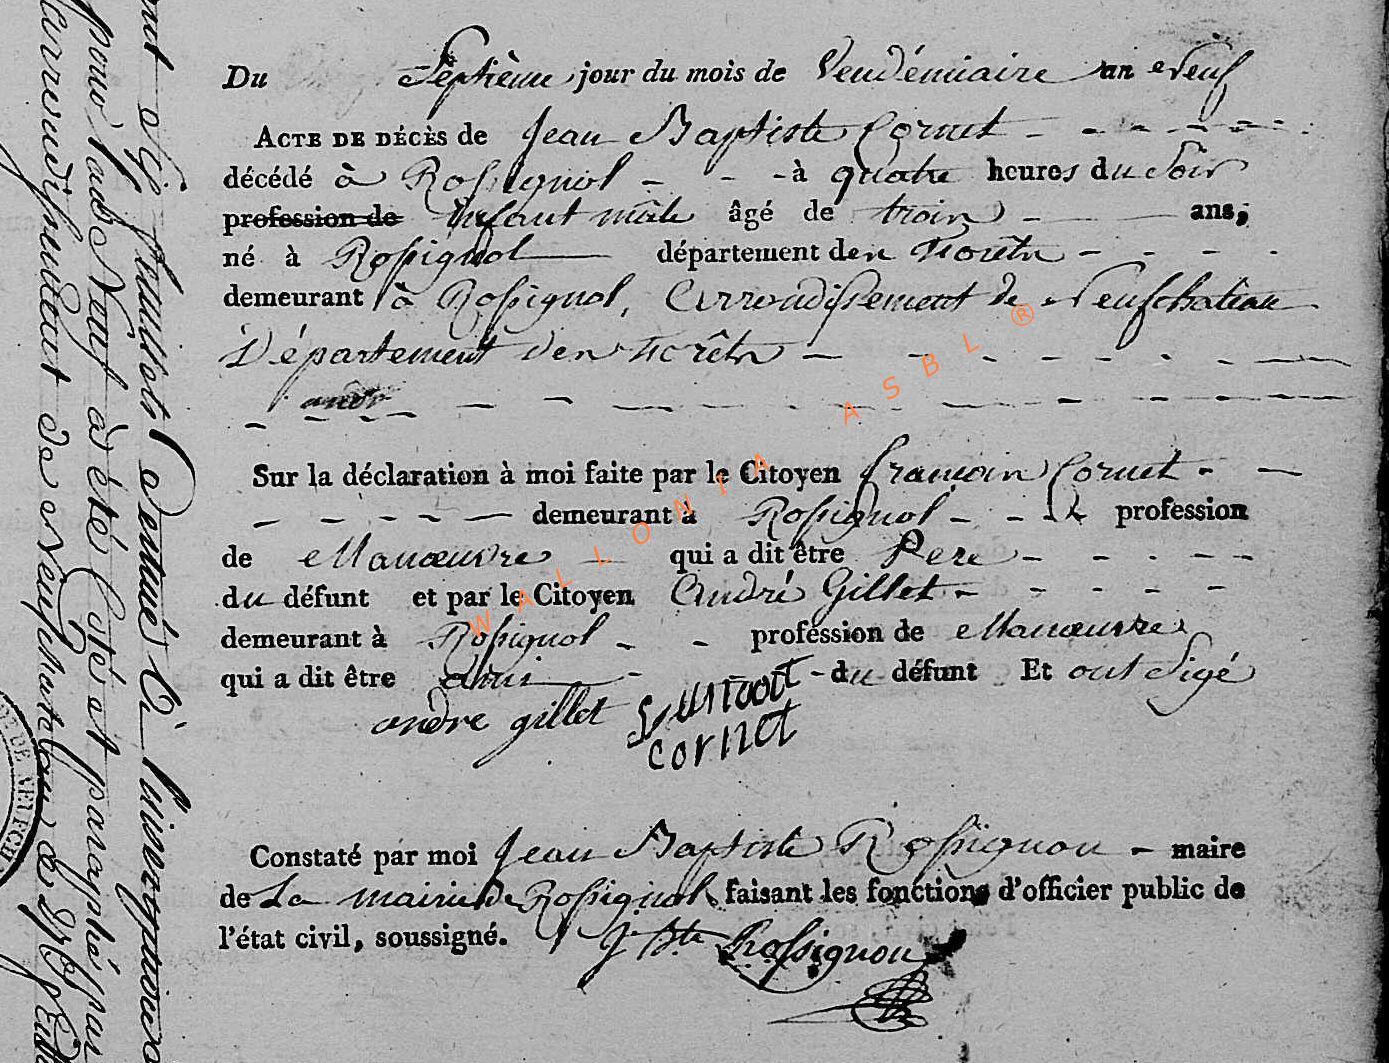 Du Septième jour du mois de Vendémiaire an Neuf
ACTE DE DÉCÈS de Jean Baptiste Cornet
décédé à Rossignol à quatre heures du Soir
profession de Enfant mâle âgé de trois ans,
né à Rossignol département des Forêts
demeurant à Rossignol, Arrondissement de Neufchateau
Département des Forêts
Sur la déclaration à moi faite par le Citoyen françois Cornet
demeurant à Rossignol profession
de Manœuvre qui a dit être Pere
du défunt et par le Citoyen André Gillet
demeurant à Rossignol profession de Manœuvre
qui a dit être ami du défunt Et ont Signé
andre gillet
cornet
Constaté par moi Jean Baptiste Rossignon maire
de La mairie de Rossignol faisant les fonctions d'officier public de
l'état civil, soussigné. J Bte Rossignon
feuillets Destiné à l'inscription
pour l'an Neuf à été Coté et paraphé par
arrondissement de Neufchateau
WALLONIA ASBL ®